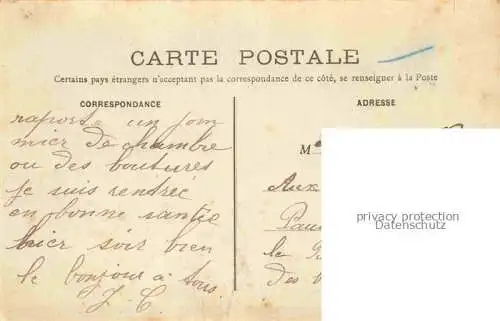 CARTE POSTALE
Certains pays étrangers n'acceptant pas la correspondance de ce côté, se renseigner à la Poste
CORRESPONDANCE
raporte un jom
mier de chambre
ou des boutures
je suis rendrée
en bonne santie
hier soir bien
le bonjour a tous
J. C.
ADRESSE
M
Aux
Pau
le
des
privacy protection
Datenschutz